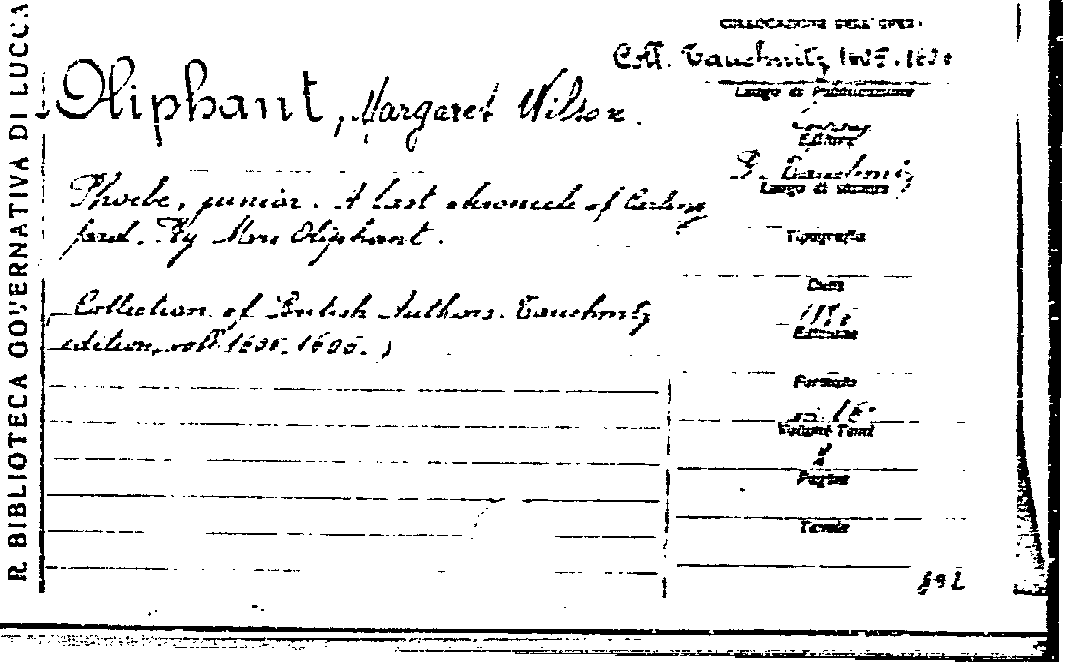 R. BIBLIOTECA GOVERNATIVA DI LUCCA
COLLOCAZIONE DELL'OPERA
Coll. Tauchnitz
Oliphant, Margaret Wilson.
Phoebe, junior. A last chronicle of Carling
ford. By Mrs Oliphant.
Collection of British Authors. Tauchnitz
edition, voll 1605.)
Luogo di Pubblicazione
Editore
B. Tauchnitz
Luogo di stampa
Tipografia
Data
Edizione
Formato
in 16°
Volumi Tomi
2
Pagine
Tavole